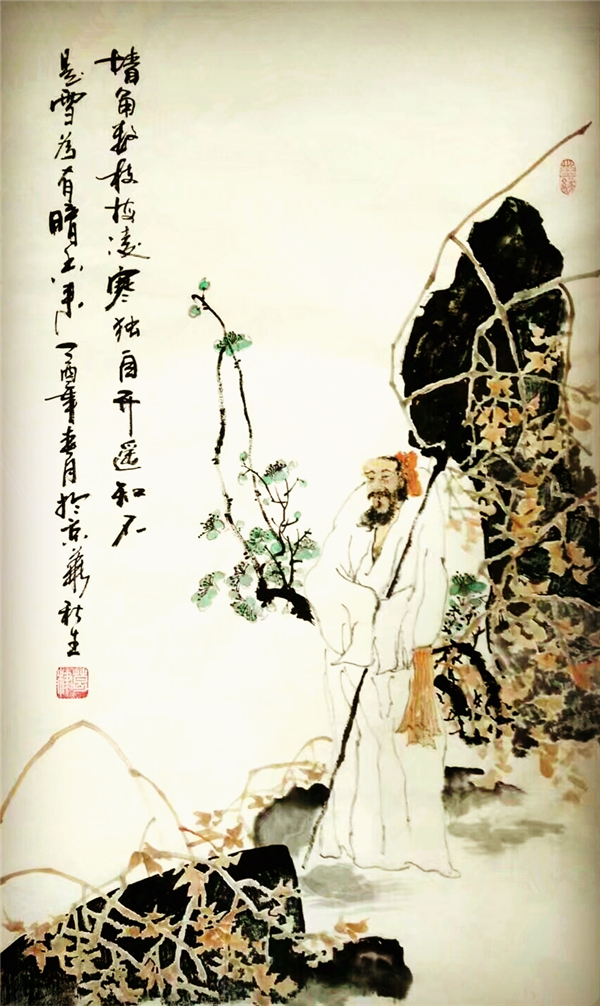 墙角数枝梅凌寒独自开遥知不
是雪為有暗香来丁酉年春月於京華秋生